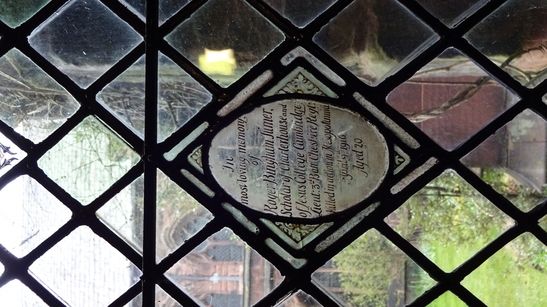 In
most loving memory
of
Roger Bingham Turner
Scholar of Charterhouse and
of Jesus College Cambridge
Lieut: 3rd Batt. Cheshire Regt.
killed in action in Mesopotamia
Jan. 1916
Aged 20